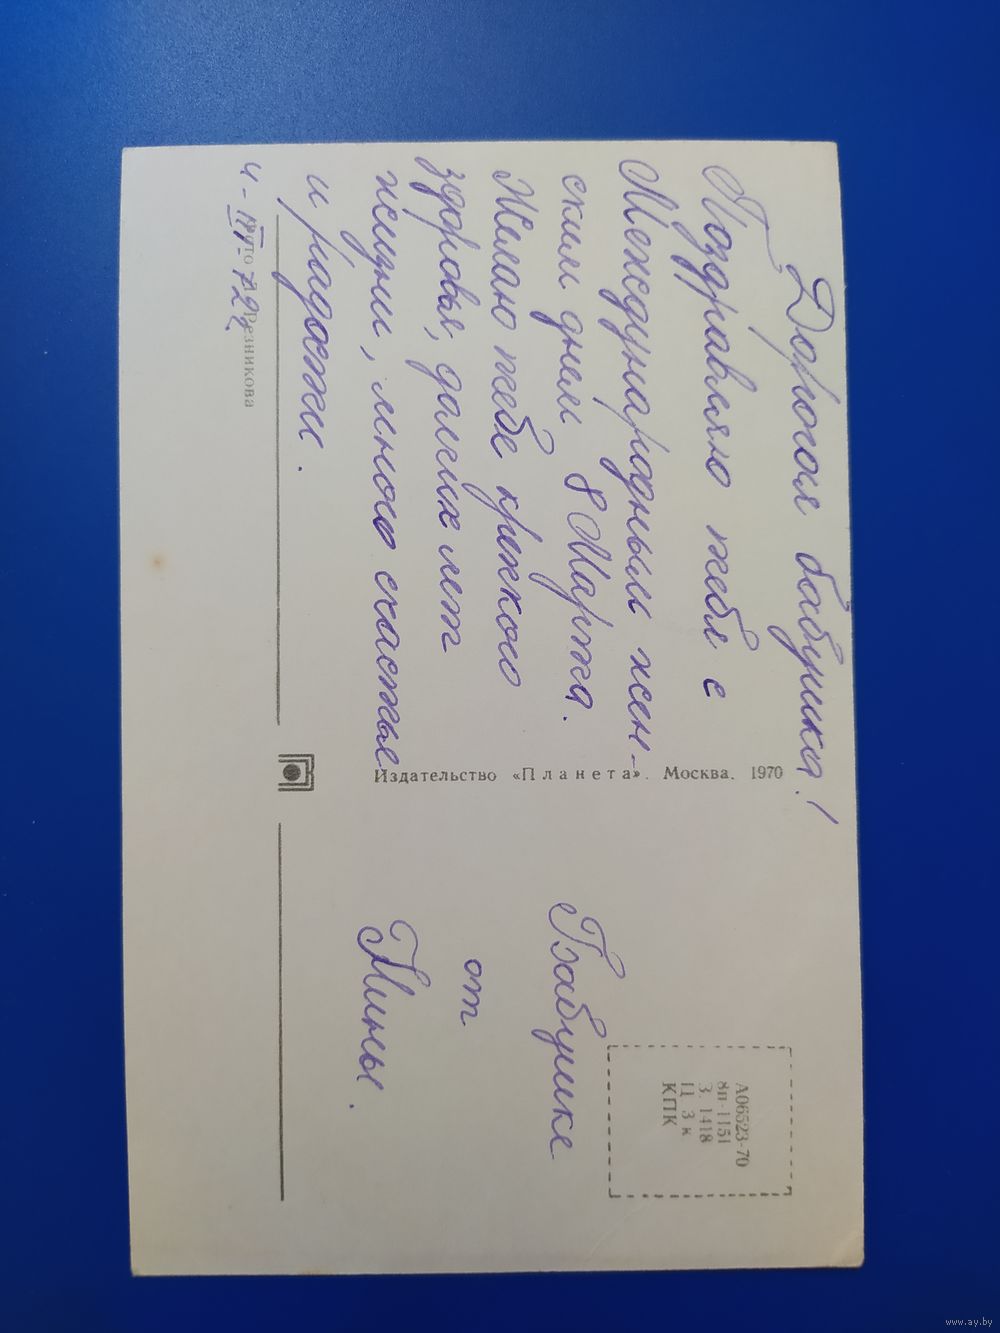 Дорогая бабушка!
Поздравляю тебя с
Международным жен-
ским днем 8 Марта.
Желаю тебе крепкого
здоровья, долгих лет
жизни, много счастья
и радости.
4-III-72г.
Фото Резникова
Издательство «Планета». Москва. 1970
Бабушке
от
Нины.
А06523-70
8п-1151
З. 1418
Ц. 3 к
КПК
www.ay.by